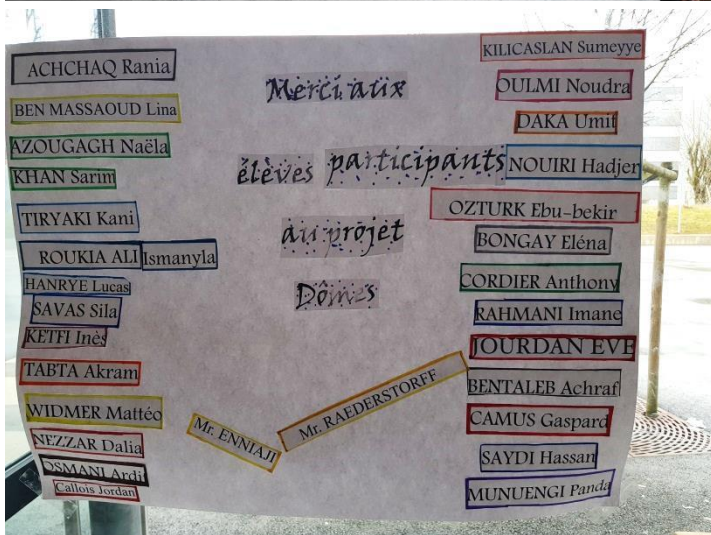 ACHCHAQ Rania
BEN MASSAOUD Lina
AZOUGAGH Naëla
KHAN Sarim
TIRYAKI Kani
ROUKIA ALI Ismanyla
HANRYE Lucas
SAVAS Sila
KETFI Inès
TABTA Akram
WIDMER Mattéo
NEZZAR Dalia
OSMANI Ardit
Callois Jordan
Merci aux
élèves participants
au projet
Dômes
Mr. ENNIAJI
Mr. RAEDERSTORFF
KILICASLAN Sumeyye
OULMI Noudra
DAKA Umit
NOUIRI Hadjer
OZTURK Ebu-bekir
BONGAY Eléna
CORDIER Anthony
RAHMANI Imane
JOURDAN EVE
BENTALEB Achraf
CAMUS Gaspard
SAYDI Hassan
MUNUENGI Panda